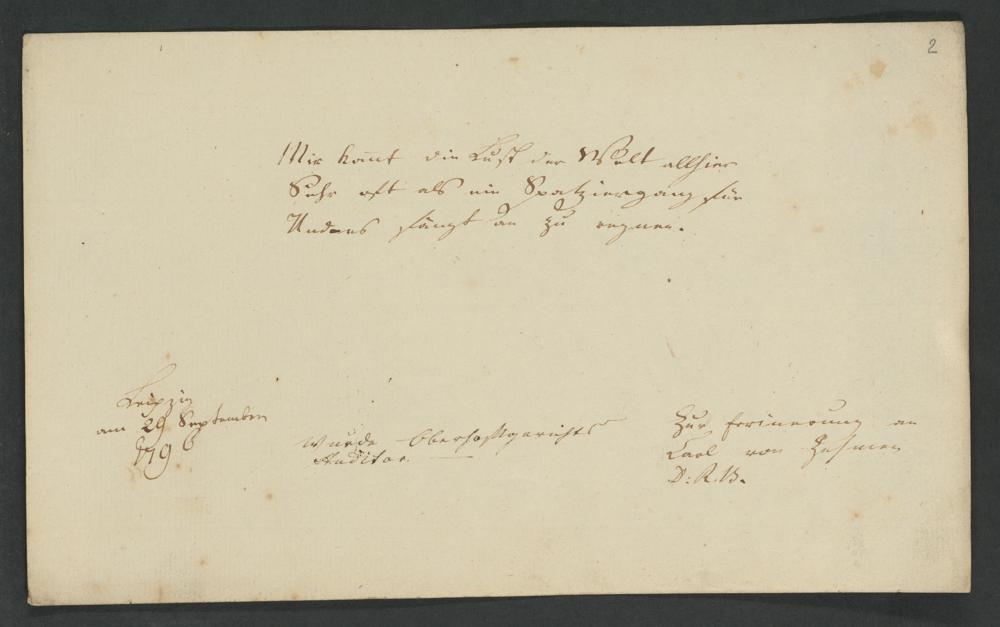 2
Mir kommt die Lust der Welt allhier
Sehr oft als ein Spatziergang für
Und es fängt an zu regnen.
Leipzig
am 29 September
1796
wurde Oberhofgerichts
Auditor.
Zur Erinnerung an
Carl von Zehmen
D: R. B.